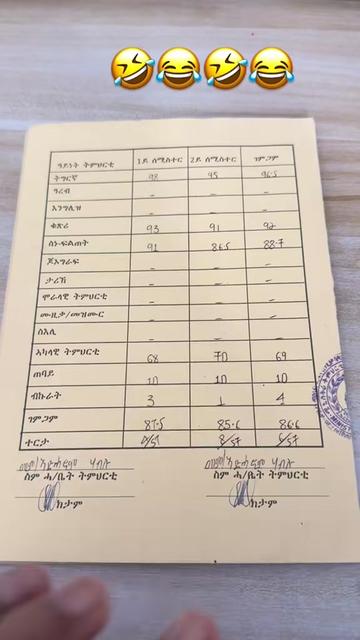 🤣😂🤣😂
ዓይነት ትምህርቲ 1ይ ሰሚስተር 2ይ ሰሚስተር ገምጋም
ትግርኛ 98 95 96.5
ዓረብ - - -
እንግሊዝ - - -
ቁጽሪ 93 91 92
ስነ-ፍልጠት 91 86.5 88.7
ጆኦግራፍ - - -
ታሪኽ - - -
ሞራላዊ ትምህርቲ - - -
ሙዚቃ/መዝሙር - - -
ስእሊ
ኣካላዊ ትምህርቲ 68 70 69
ጠባይ 10 10 10
ብኩራት 3 1 4
ገምጋም 87.5 85.6 86.6
ተርታ /57 8/57 6/57
ስም ሓ/ቤት ትምህርቲ ስም ሓ/ቤት ትምህርቲ
ክታም ክታም